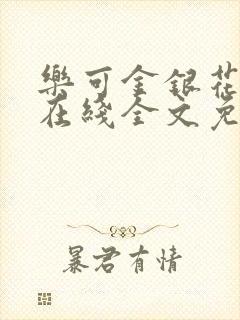 樂可金銀花
在綫全文免
暴君有情